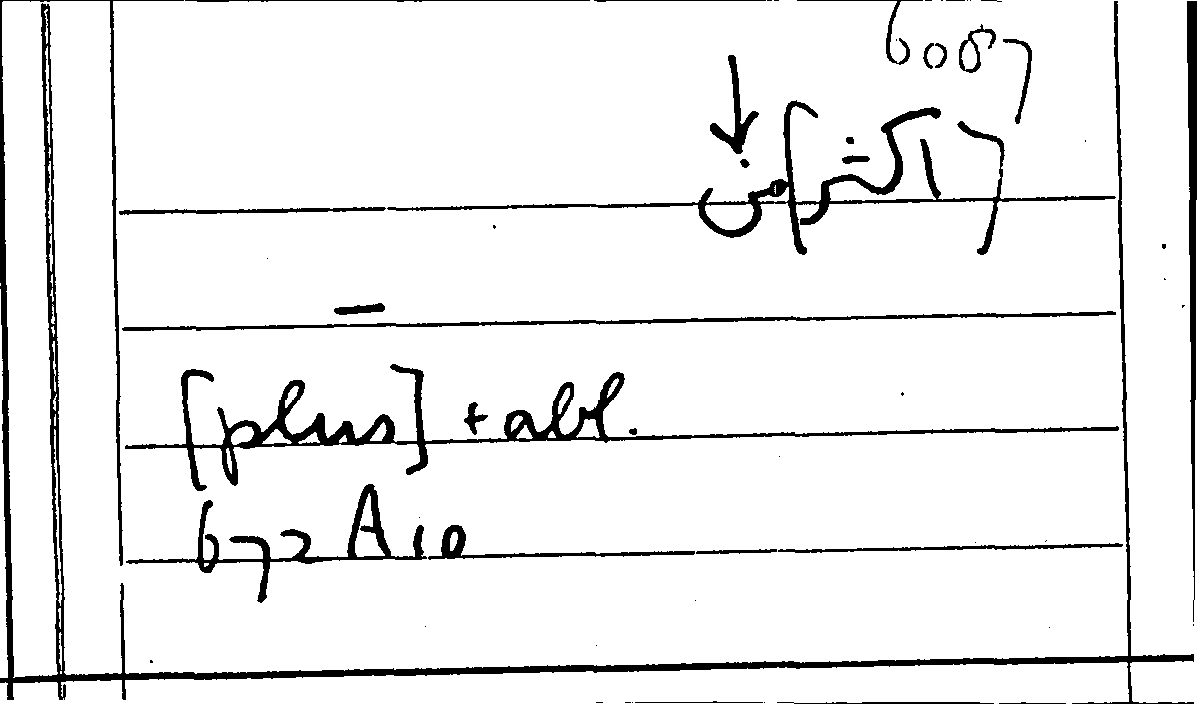 [اكثر] من
–
[plus] + abl.
672 A 10